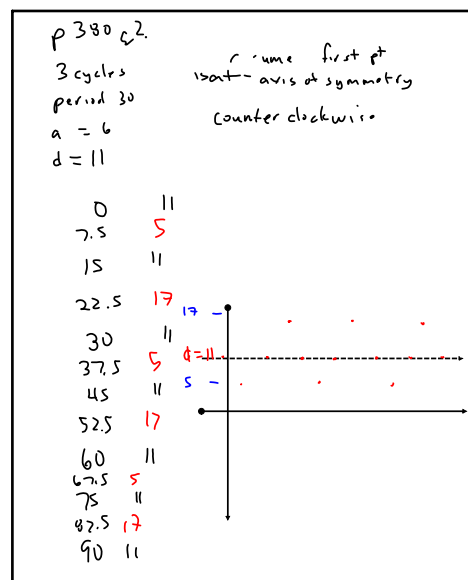 p 380 q 2.
3 cycles
period 30
a = 6
d = 11
first pt
axis of symmetry
counter clockwise
0 11
7.5 5
15 11
22.5 17
30 11
37.5 5
45 11
52.5 17
60 11
67.5 5
75 11
82.5 17
90 11
17
d=11
5